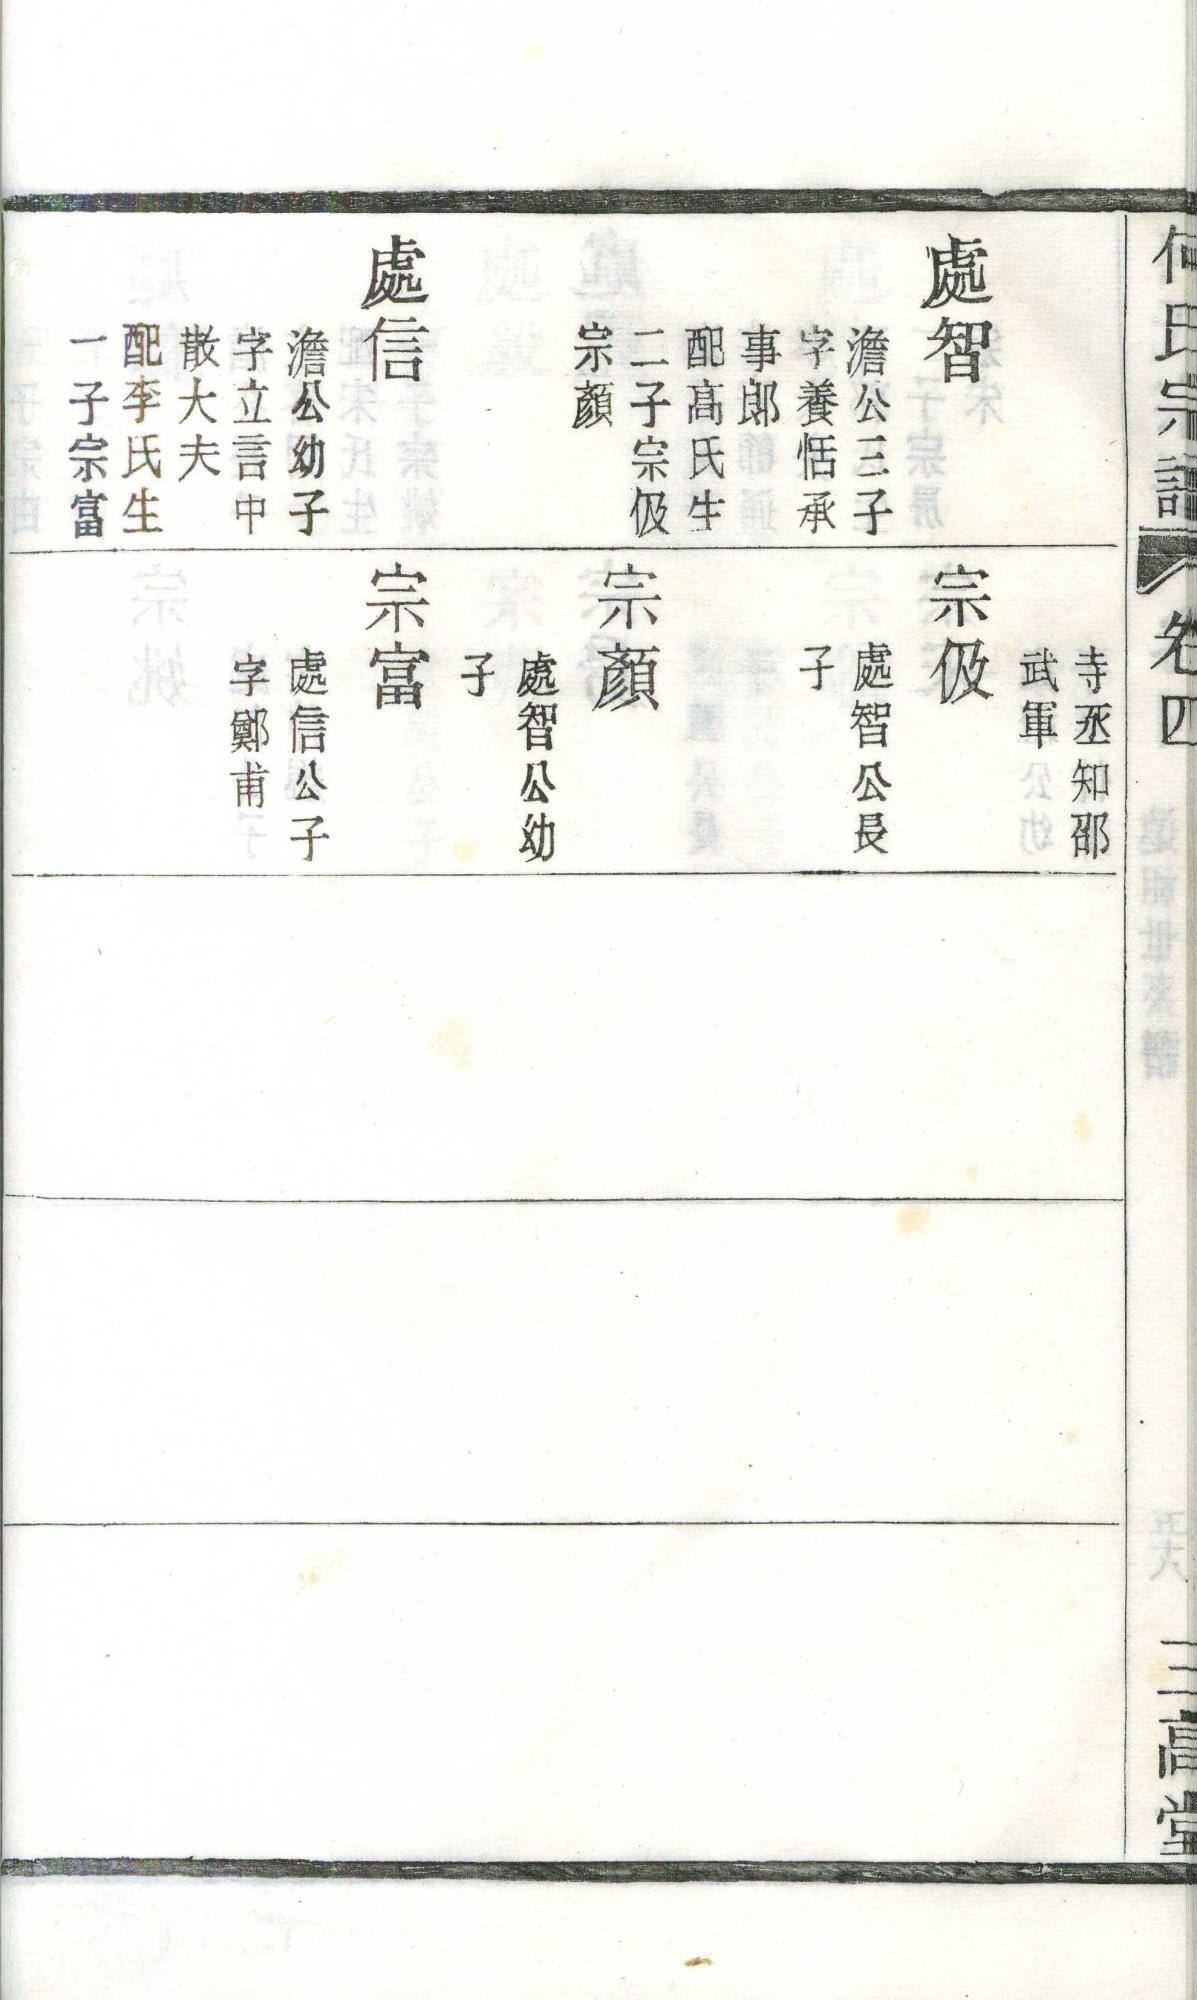 何氏宗譜
卷四
三高堂
處智
澹公三子
字養恬承
事郎
配高氏生
二子宗伋
宗顏
處信
澹公幼子
字立言中
散大夫
配李氏生
一子宗富
寺丞知邵
武軍
宗伋
處智公長
子
宗顏
處智公幼
子
宗富
處信公子
字鄭甫